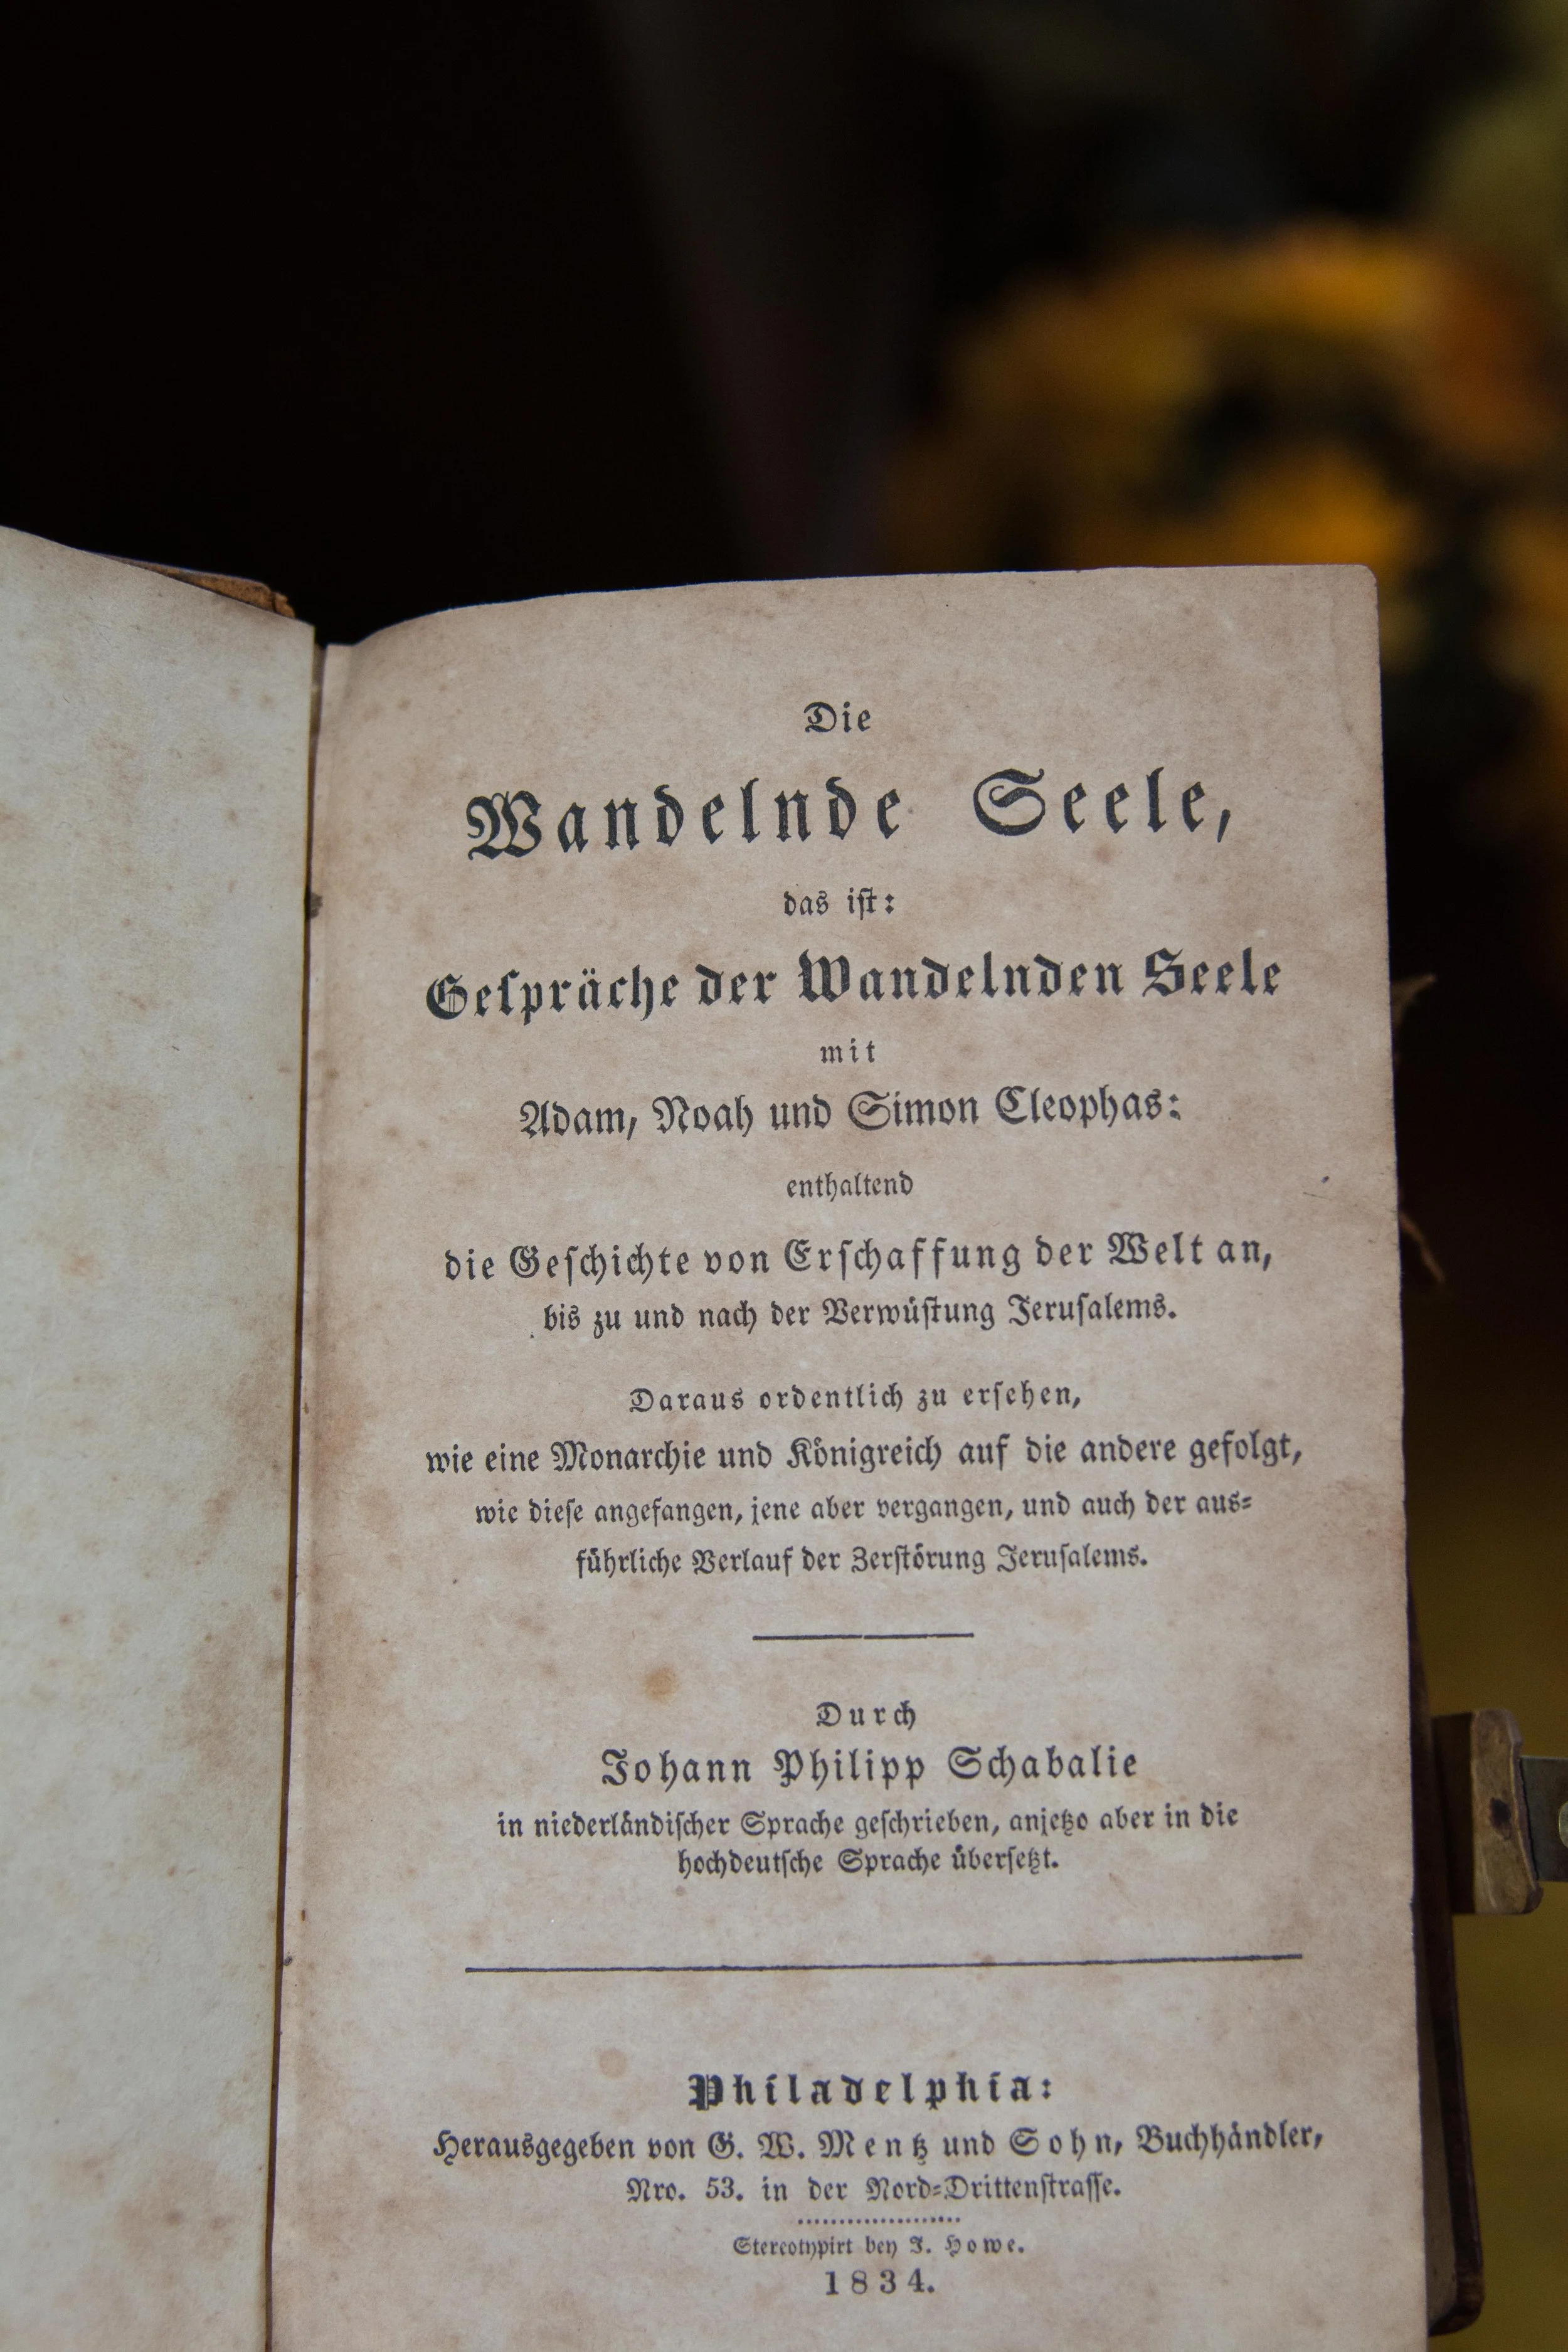 Die
Wandelnde Seele,
das iſt:
Geſpräche der Wandelnden Seele
mit
Adam, Noah und Simon Cleophas:
enthaltend
die Geſchichte von Erſchaffung der Welt an,
bis zu und nach der Verwüſtung Jeruſalems.
Daraus ordentlich zu erſehen,
wie eine Monarchie und Königreich auf die andere gefolgt,
wie dieſe angefangen, jene aber vergangen, und auch der aus⸗
führliche Verlauf der Zerſtörung Jeruſalems.
Durch
Johann Philipp Schabalie
in niederländiſcher Sprache geſchrieben, anjetzo aber in die
hochdeutſche Sprache überſetzt.
Philadelphia:
Herausgegeben von G. W. Mentz und Sohn, Buchhändler,
Nro. 53. in der Nord⸗Drittenſtraſſe.
Stereotypirt bey J. Howe.
1834.